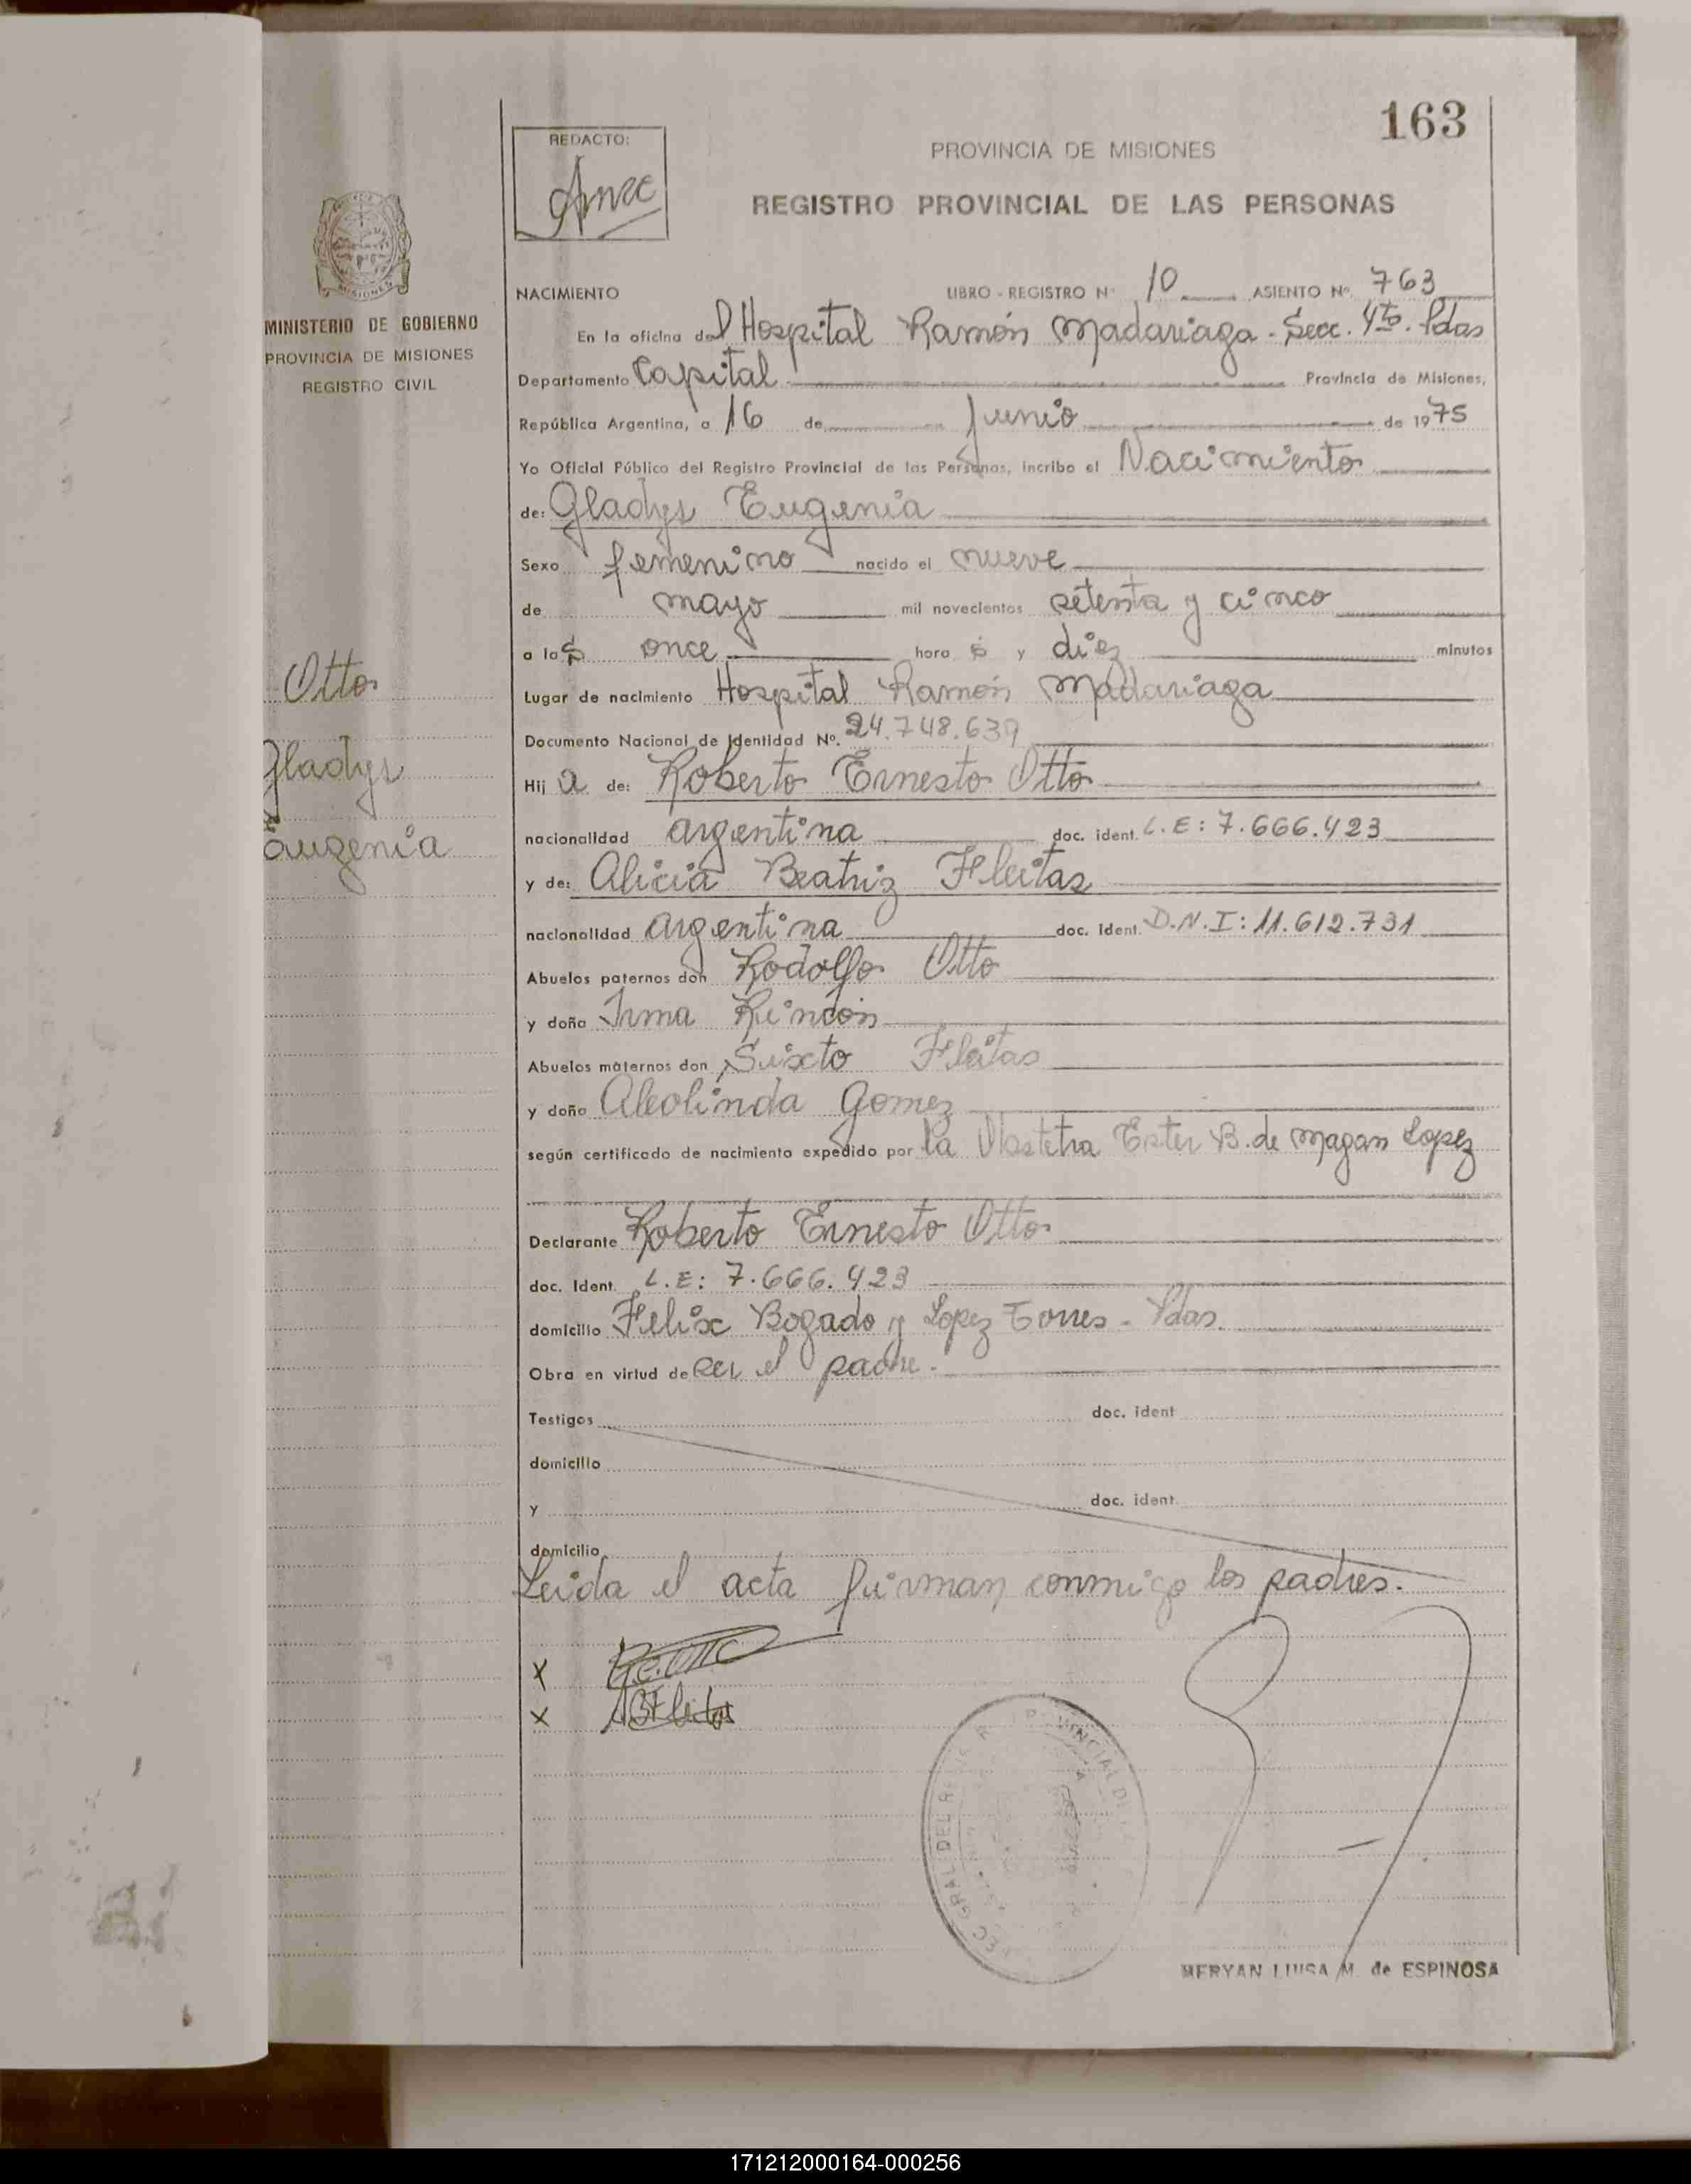 163
REDACTO:
PROVINCIA DE MISIONES
REGISTRO PROVINCIAL DE LAS PERSONAS
MINISTERIO DE GOBIERNO
PROVINCIA DE MISIONES
REGISTRO CIVIL
NACIMIENTO LIBRO - REGISTRO Nº 10 ASIENTO Nº 763
En la oficina del Hospital Ramón Madariaga - Secc. 4ta. Pdas
Departamento Capital Provincia de Misiones,
República Argentina, a 16 de Junio de 1975
Yo Oficial Público del Registro Provincial de las Personas, incribo el Nacimiento
de: Gladys Eugenia
Sexo femenino nacido el nueve
de mayo mil novecientos setenta y cinco
a las once horas y diez minutos
Lugar de nacimiento Hospital Ramón Madariaga
Documento Nacional de Identidad Nº. 24.748.639
Hija de: Roberto Ernesto Otto
nacionalidad argentina doc. ident. L.E: 7.666.423
y de: Alicia Beatriz Fleitas
nacionalidad argentina doc. ident. D.N.I: 11.612.731
Abuelos paternos don Rodolfo Otto
y doña Irma Rincón
Abuelos maternos don Sixto Fleitas
y doña Aleolinda Gomez
según certificado de nacimiento expedido por la Obstetra Ester B. de Magan Lopez
Declarante Roberto Ernesto Otto
doc. Ident. L.E: 7.666.423
domicilio Felix Bogado y Lopez Torres - Pdas.
Obra en virtud de ser el padre.
Testigos doc. ident
domicilio
y doc. ident.
domicilio
Leida el acta firman conmigo los padres.
X
X
MERYAN LUISA M. de ESPINOSA
Otto
Gladys
Eugenia
171212000164-000256